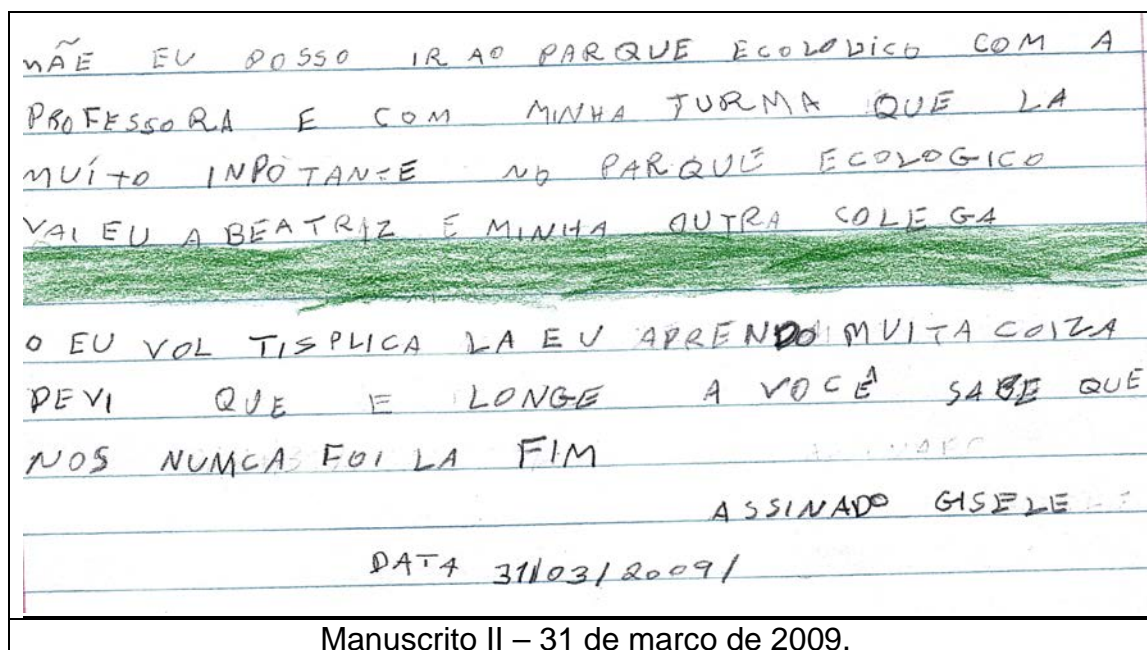 MÃE EU POSSO IR AO PARQUE ECOLOUICO COM A
PROFESSORA E COM MINHA TURMA QUE LA
MUÍTO INPOTANTE NO PARQUE ECOLOGICO
VAI EU A BEATRIZ E MINHA OUTRA COLEGA
O EU VOL TISPLICA LA EU APRENDO MUITA COIZA
DEVI QUE E LONGE A VOCÊ SABE QUE
NOS NUMCA FOI LA FIM
ASSINADO GISELE
DATA 31/03/2009/
Manuscrito II – 31 de março de 2009.